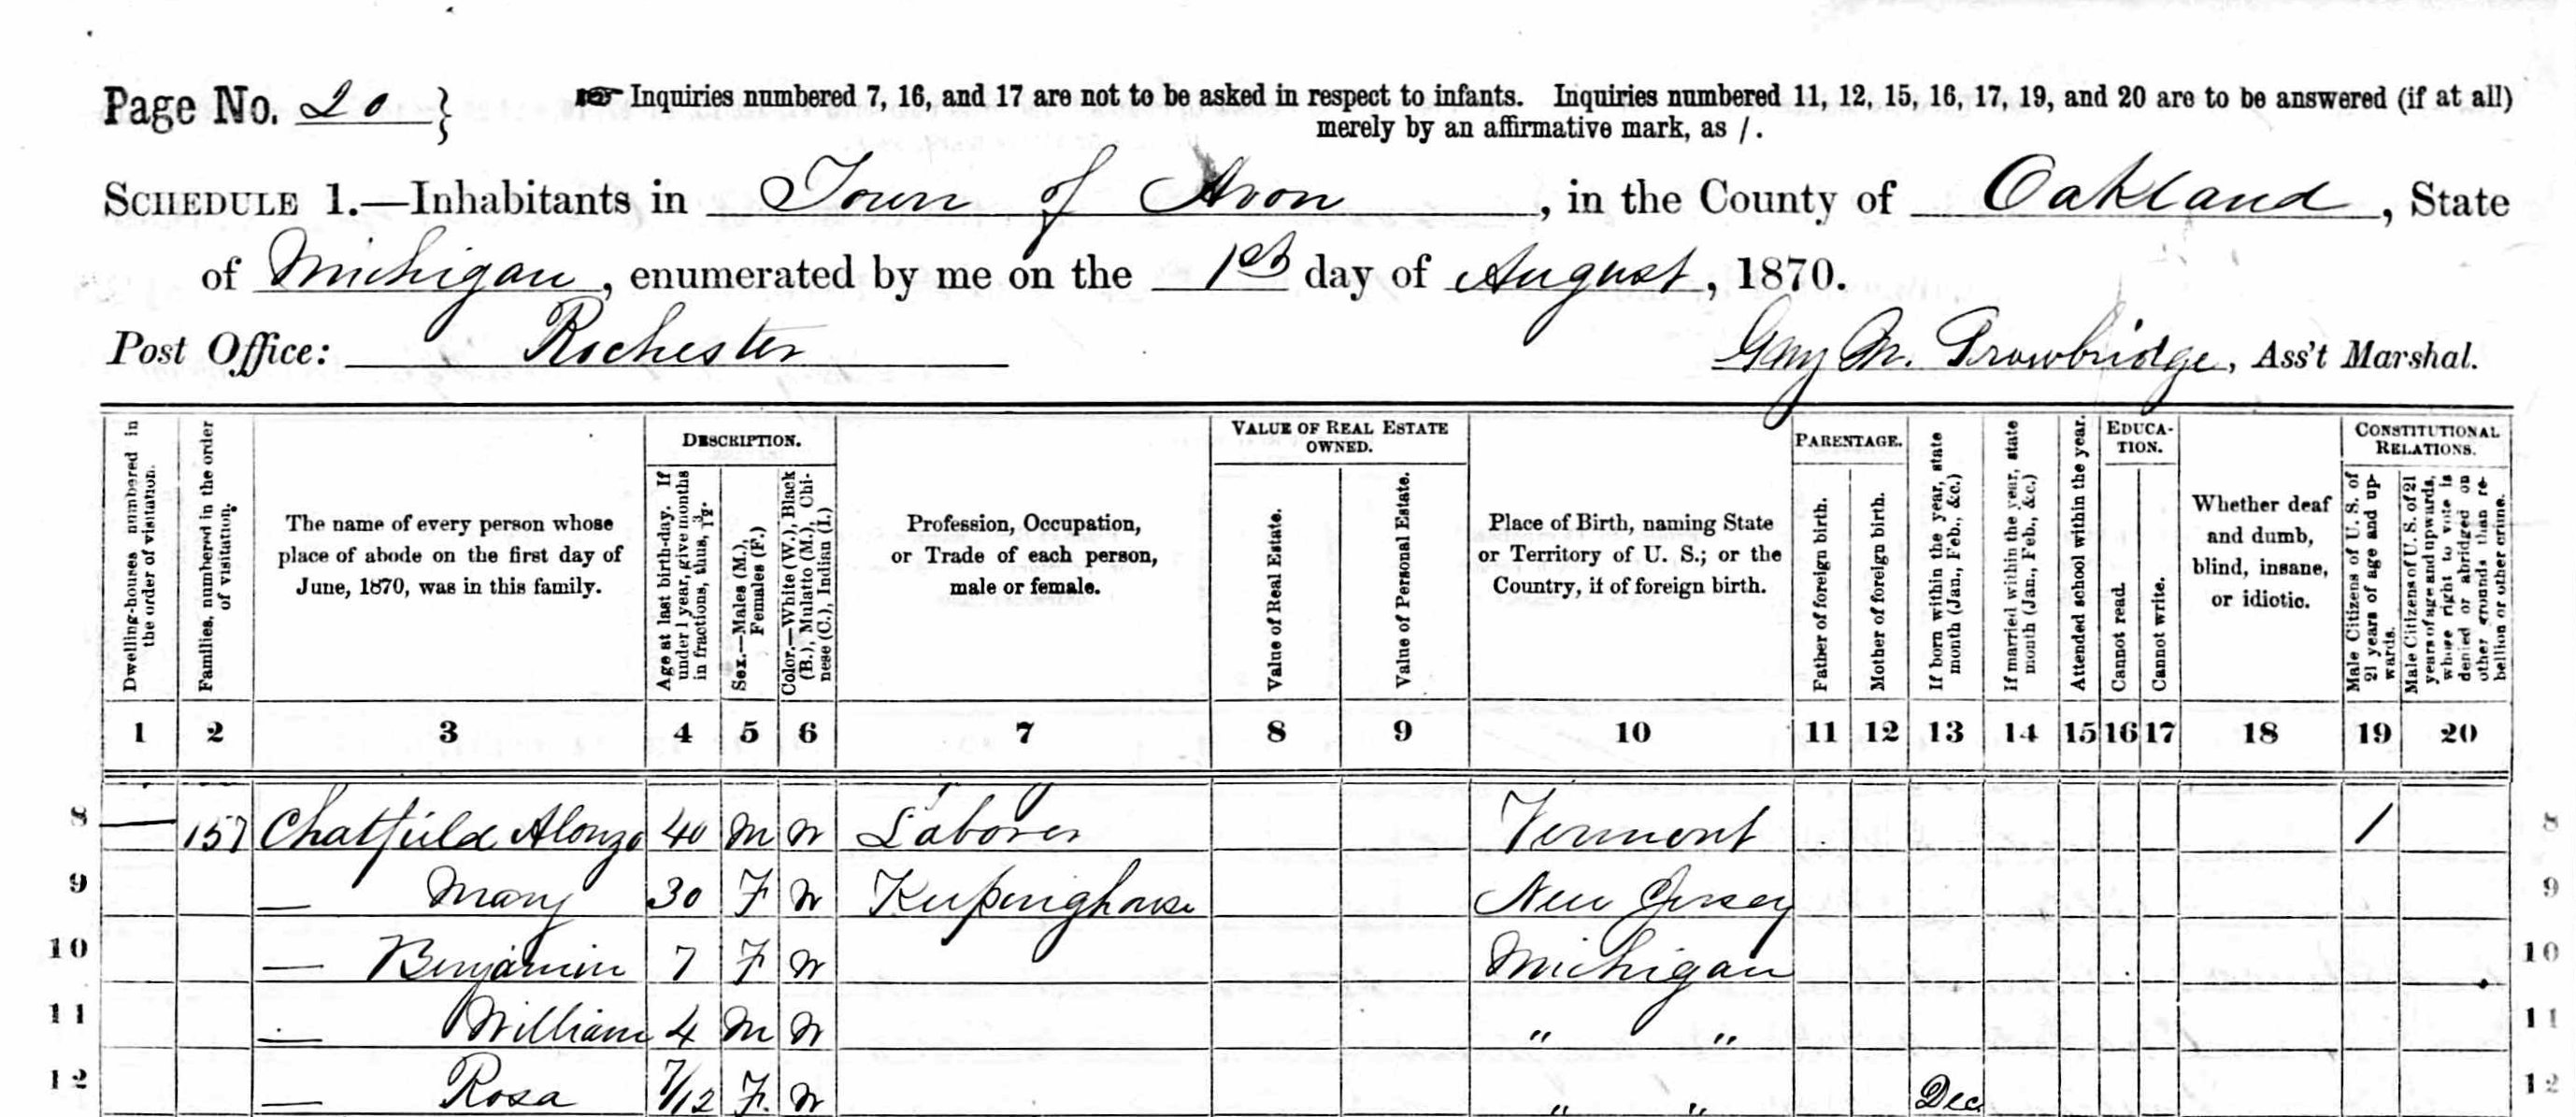 Page No. 20 }
☛ Inquiries numbered 7, 16, and 17 are not to be asked in respect to infants. Inquiries numbered 11, 12, 15, 16, 17, 19, and 20 are to be answered (if at all)
merely by an affirmative mark, as /.
SCHEDULE 1.—Inhabitants in Town of Avon, in the County of Oakland, State
of Michigan, enumerated by me on the 1st day of August, 1870.
Post Office: Rochester
Guy M. Trowbridge, Ass't Marshal.
Dwelling-houses numbered in the order of visitation.
Families, numbered in the order of visitation.
The name of every person whose place of abode on the first day of June, 1870, was in this family.
DESCRIPTION.
Age at last birth-day. If under 1 year, give months in fractions, thus, 3/12.
Sex.—Males (M.), Females (F.)
Color.—White (W.), Black (B.), Mulatto (M.), Chinese (C.), Indian (I.)
Profession, Occupation, or Trade of each person, male or female.
VALUE OF REAL ESTATE OWNED.
Value of Real Estate.
Value of Personal Estate.
Place of Birth, naming State or Territory of U. S.; or the Country, if of foreign birth.
PARENTAGE.
Father of foreign birth.
Mother of foreign birth.
If born within the year, state month (Jan., Feb., &c.)
If married within the year, state month (Jan., Feb., &c.)
Attended school within the year.
EDUCATION.
Cannot read.
Cannot write.
Whether deaf and dumb, blind, insane, or idiotic.
CONSTITUTIONAL RELATIONS.
Male Citizens of U. S. of 21 years of age and upwards.
Male Citizens of U. S. of 21 years of age and upwards, whose right to vote is denied or abridged on other grounds than rebellion or other crime.
1 2 3 4 5 6 7 8 9 10 11 12 13 14 15 16 17 18 19 20
8 — 157 Chatfield Alonzo 40 M W Laborer Vermont / 8
9 — Mary 30 F W Keepinghouse New Jersey 9
10 — Benjamin 7 F W Michigan 10
11 — William 4 M W " " 11
12 — Rosa 7/12 F. W " " Dec 12